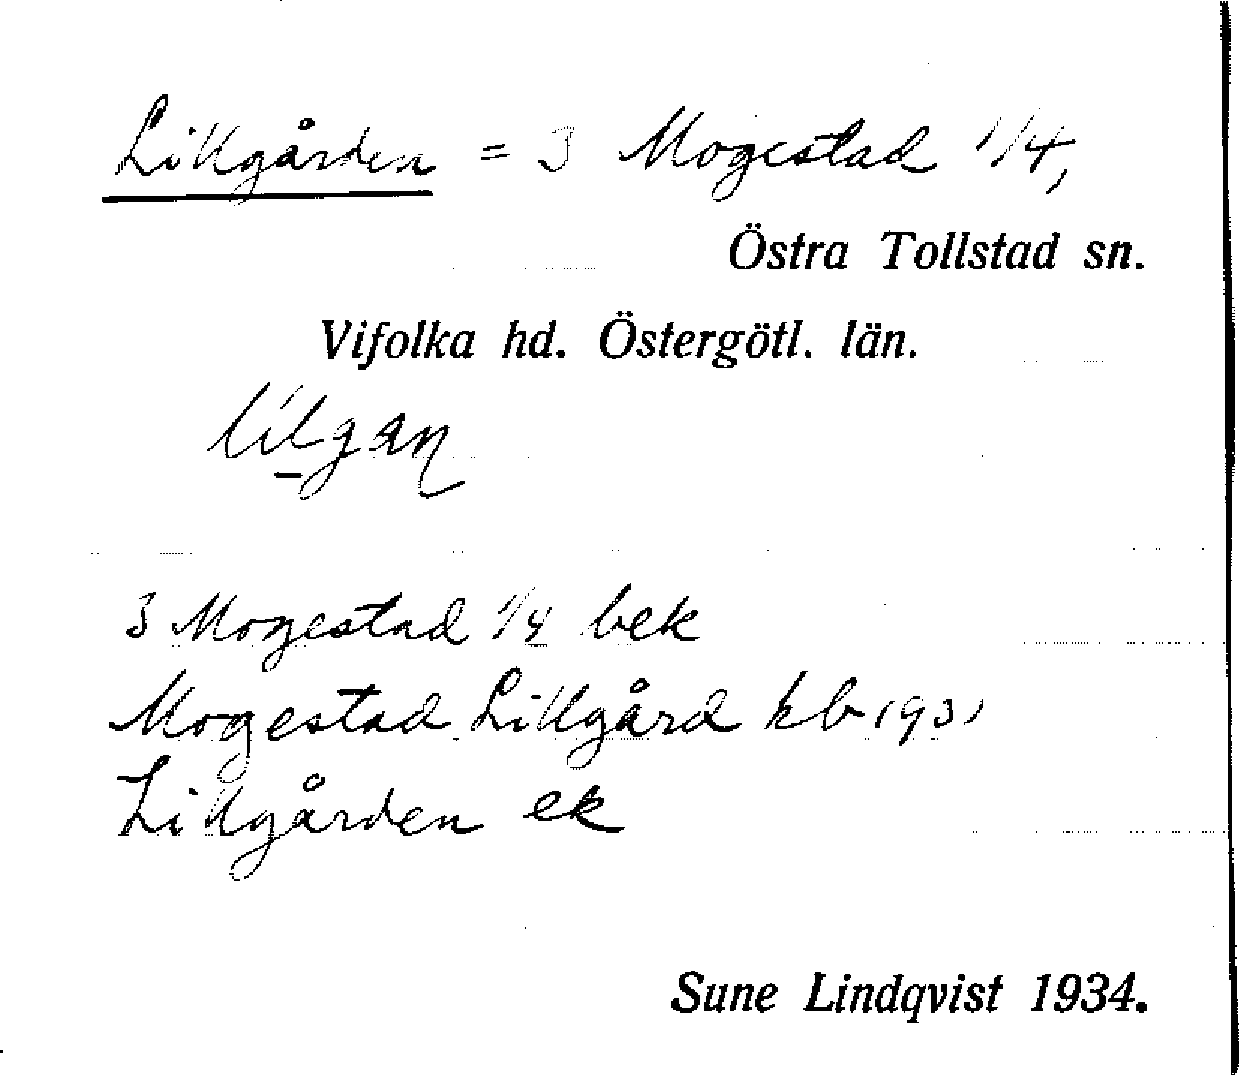 Lillgården = 3 Mogestad 1/4,
Östra Tollstad sn.
Vifolka hd. Östergötl. län.
3 Mogestad 1/4 bek
Mogestad Lillgård kb 1931
Lillgården ek
Sune Lindqvist 1934.